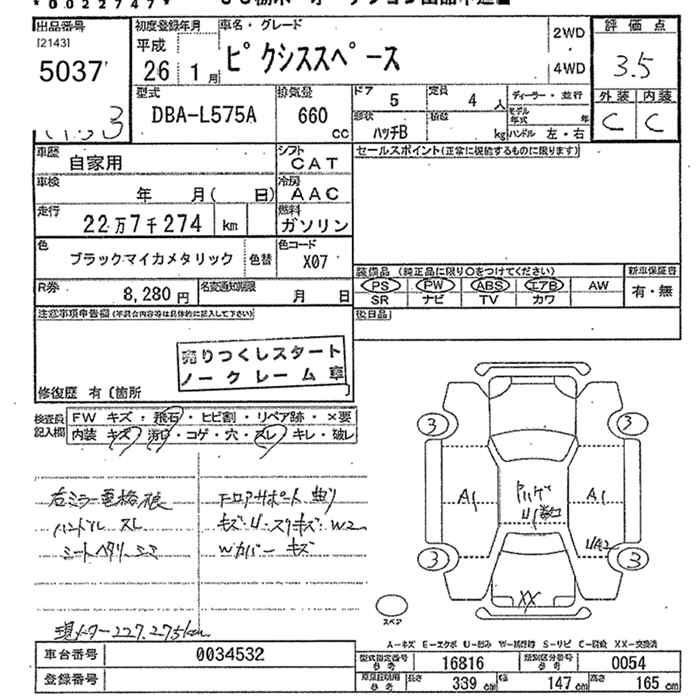 *0022747*
出品番号 初度登録年月 車名・グレード 2WD 評価点
[2143] 平成
5037 26 1月 ピクシススペース 4WD 3.5
型式 排気量 ドア 5 定員 4人 ディーラー・並行 外装 内装
DBA-L575A 660cc 形状 ハッチB 積載 kg モデル年式 年 C C
ハンドル 左・右
車歴 自家用 シフト CAT セールスポイント(正常に視聴するものに限ります)
車検 年 月( 日) 冷房 AAC
走行 22万7千274 km 燃料 ガソリン
色 ブラックマイカメタリック 色替 色コード X07
装備品 (純正品に限り○をつけてください) 新車保証書
PS PW ABS エアB AW 有・無
R券 8,280円 名変通知期限 月 日 SR ナビ TV カワ
注意事項申告欄(不具合内容等は具体的に記入して下さい) 後日品
売りつくしスタート
ノークレーム車
修復歴 有〔箇所 〕
検査員記入欄 FW キズ・飛石・ヒビ割・リペア跡・×要
内装 キズ・汚レ・コゲ・穴・スレ・キレ・破レ
3 3
右ミラー電格 フロアサポート 曲り
ハンドル スレ
シートヘタリ
Wカバー キズ
A1 A1
3 3
XX
スペア
現メーター227,275km
A-キズ E-エクボ U-凹み W-補修跡 S-サビ C-腐蝕 XX-交換済
車台番号 0034532 型式指定番号参考 16816 類別区分番号参考 0054
登録番号 長さ 339cm 幅 147cm 高さ 165cm